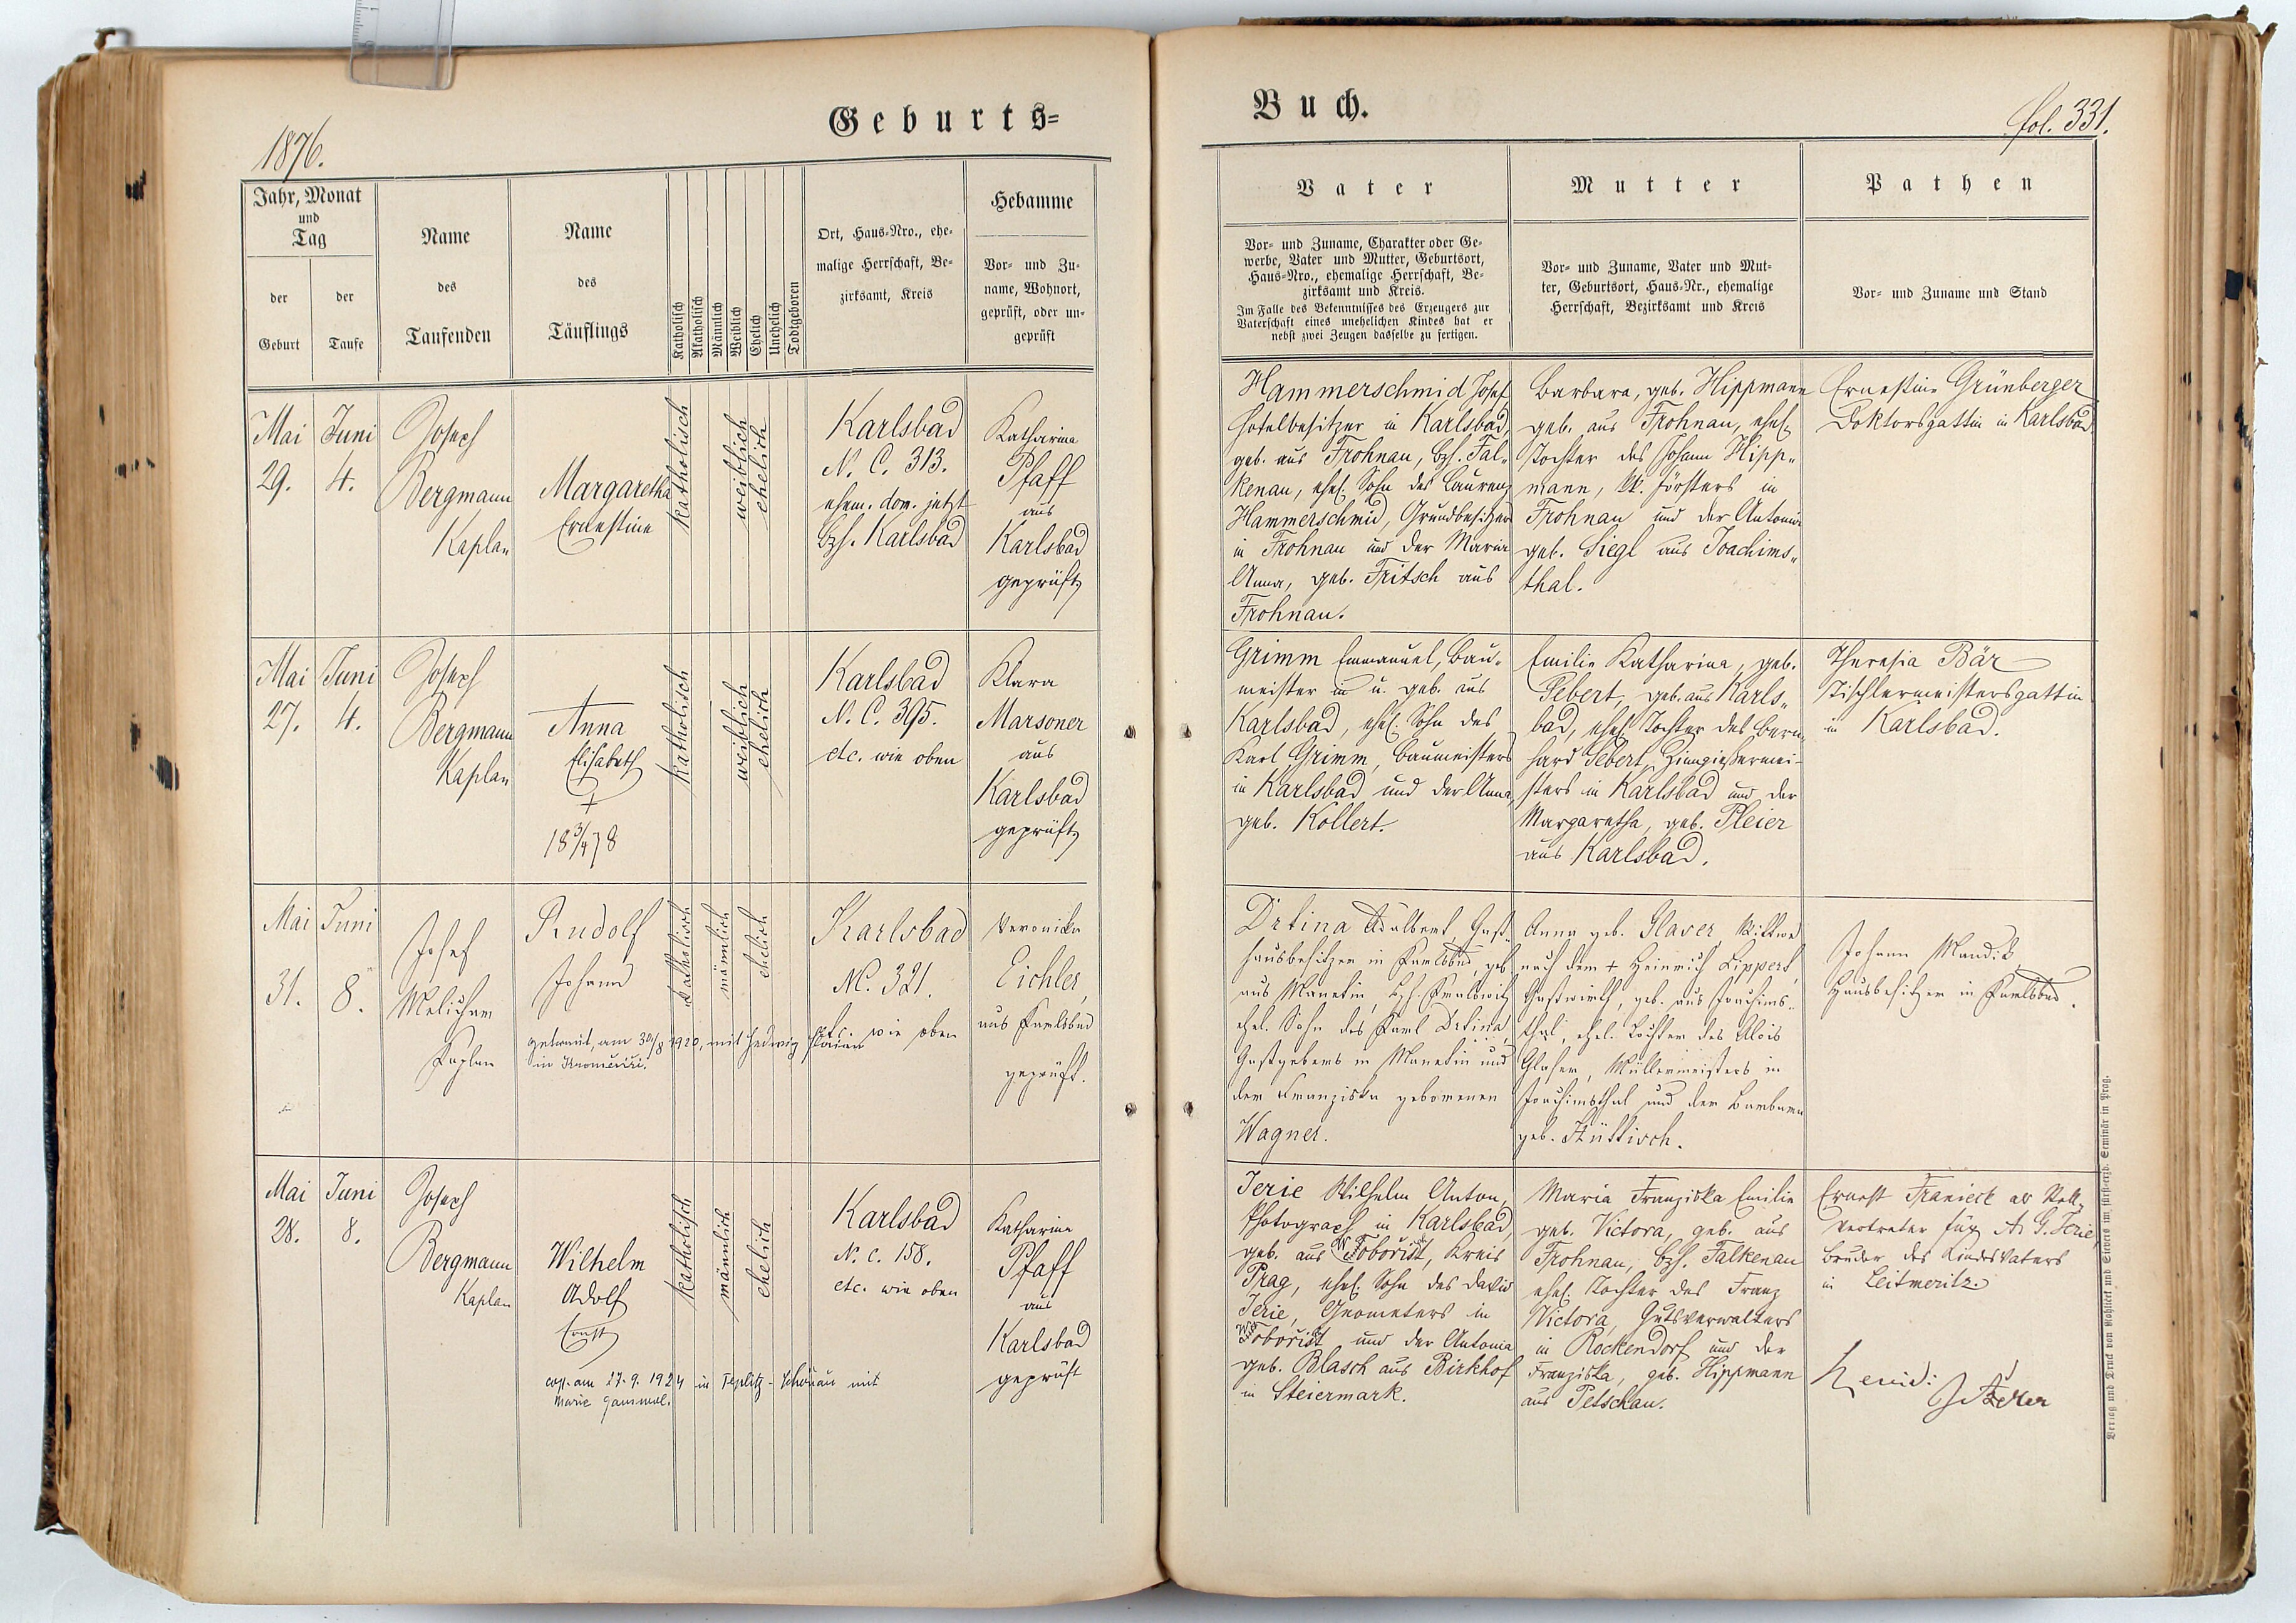 1876.
Geburts=
Buch.
fol. 331.
Jahr, Monat
und
Tag
der
Geburt
der
Taufe
Name
des
Taufenden
Name
des
Täuflings
Katholisch
Akatholisch
Männlich
Weiblich
Ehelich
Unehelich
Todtgeboren
Ort, Haus-Nro., ehe-
malige Herrschaft, Be-
zirksamt, Kreis
Hebamme
Vor- und Zu-
name, Wohnort,
geprüft, oder un-
geprüft
Vater
Vor- und Zuname, Charakter oder Ge-
werbe, Vater und Mutter, Geburtsort,
Haus-Nro., ehemalige Herrschaft, Be-
zirksamt und Kreis.
Im Falle des Bekenntnisses des Erzeugers zur
Vaterschaft eines unehelichen Kindes hat er
nebst zwei Zeugen dasselbe zu fertigen.
Mutter
Vor- und Zuname, Vater und Mut-
ter, Geburtsort, Haus-Nr., ehemalige
Herrschaft, Bezirksamt und Kreis
Pathen
Vor- und Zuname und Stand
Mai
29.
Juni
4.
Joseph
Bergmann
Kaplan
Margaretha
Ernestine
katholisch
weiblich
ehelich
Karlsbad
N. C. 313.
ehem. dom. jetzt
bzh. Karlsbad
Katharina
Pfaff
aus
Karlsbad
geprüft
Hammerschmid Josef,
Hotelbesitzer in Karlsbad,
geb. aus Frohnau, bzh. Fal-
kenau, ehel. Sohn des Laurenz
Hammerschmid, Grundbesitzer
in Frohnau und der Maria
Anna, geb. Fritsch aus
Frohnau.
Barbara, geb. Hippmann
geb. aus Frohnau, ehel.
Tochter des Johann Hipp-
mann, kk. Försters in
Frohnau und der Antonia
geb. Siegl aus Joachims-
thal.
Ernestine Grünberger
Doktorsgattin in Karlsbad.
Mai
27.
Juni
4.
Joseph
Bergmann
Kaplan
Anna
Elisabeth
+
18 3/4 78
katholisch
weiblich
ehelich
Karlsbad
N. C. 395.
etc. wie oben
Klara
Marsoner
aus
Karlsbad
geprüft
Grimm Emmanuel, Bau-
meister in u. geb. aus
Karlsbad, ehel. Sohn des
Karl Grimm, Baumeisters
in Karlsbad und der Anna,
geb. Kollert.
Emilie Katharina, geb.
Sebert, geb. aus Karls-
bad, ehel. Tochter des Bern-
hard Sebert, Zinngießermei-
sters in Karlsbad und der
Margaretha, geb. Pleier
aus Karlsbad.
Theresia Bär
Tischlermeistersgattin
in Karlsbad.
Mai
31.
Juni
8.
Josef
Melicham
Kaplan
Rudolf
Johann
getraut, am 30/8 1920, mit Hedwig
in Kroměříži.
katholisch
männlich
ehelich
Karlsbad
N. 321.
etc. wie oben
Veronika
Eichler,
aus Karlsbad
geprüft.
Drtina Adalbert, Gast-
hausbesitzer in Karlsbad, geb.
aus Manetin, bzh. Kralowitz
ehel. Sohn des Karl Drtina,
Gastgebers in Manetin und
der Franziska gebornen
Wagner.
Anna geb. Glaser Wittwe
nach dem + Heinrich Lippert,
Gastwirth, geb. aus Joachims-
thal, ehel. Tochter des Alois
Glaser, Müllermeisters in
Joachimsthal und der Barbara
geb. Hüttisch.
Johann Mandik,
Hausbesitzer in Karlsbad.
Mai
28.
Juni
8.
Joseph
Bergmann
Kaplan
Wilhelm
Adolf
Ernst
cop. am 27.9.1924 in Teplitz-Schönau mit
Marie Gammel.
katholisch
männlich
ehelich
Karlsbad
N. C. 158.
etc. wie oben
Katharina
Pfaff
aus
Karlsbad
geprüft
Jerie Wilhelm Anton,
Photograph in Karlsbad,
geb. aus Woborist, Kreis
Prag, ehel. Sohn des David
Jerie, Geometers in
Woborist und der Antonia
geb. Blasch aus Birkhof
in Steiermark.
Maria Franziska Emilie
geb. Victora, geb. aus
Frohnau, bzh. Falkenau
ehel. Tochter des Franz
Victora, Gutsverwalters
in Rockendorf und der
Franziska, geb. Hippmann
aus Petschau.
Ernest Franieck als Stell-
vertreter für A. G. Jerie,
Bruder des Kindesvaters
in Leitmeritz.
Verlag und Druck von Rohliček und Sievers im fürst-erzb. Seminär in Prag.